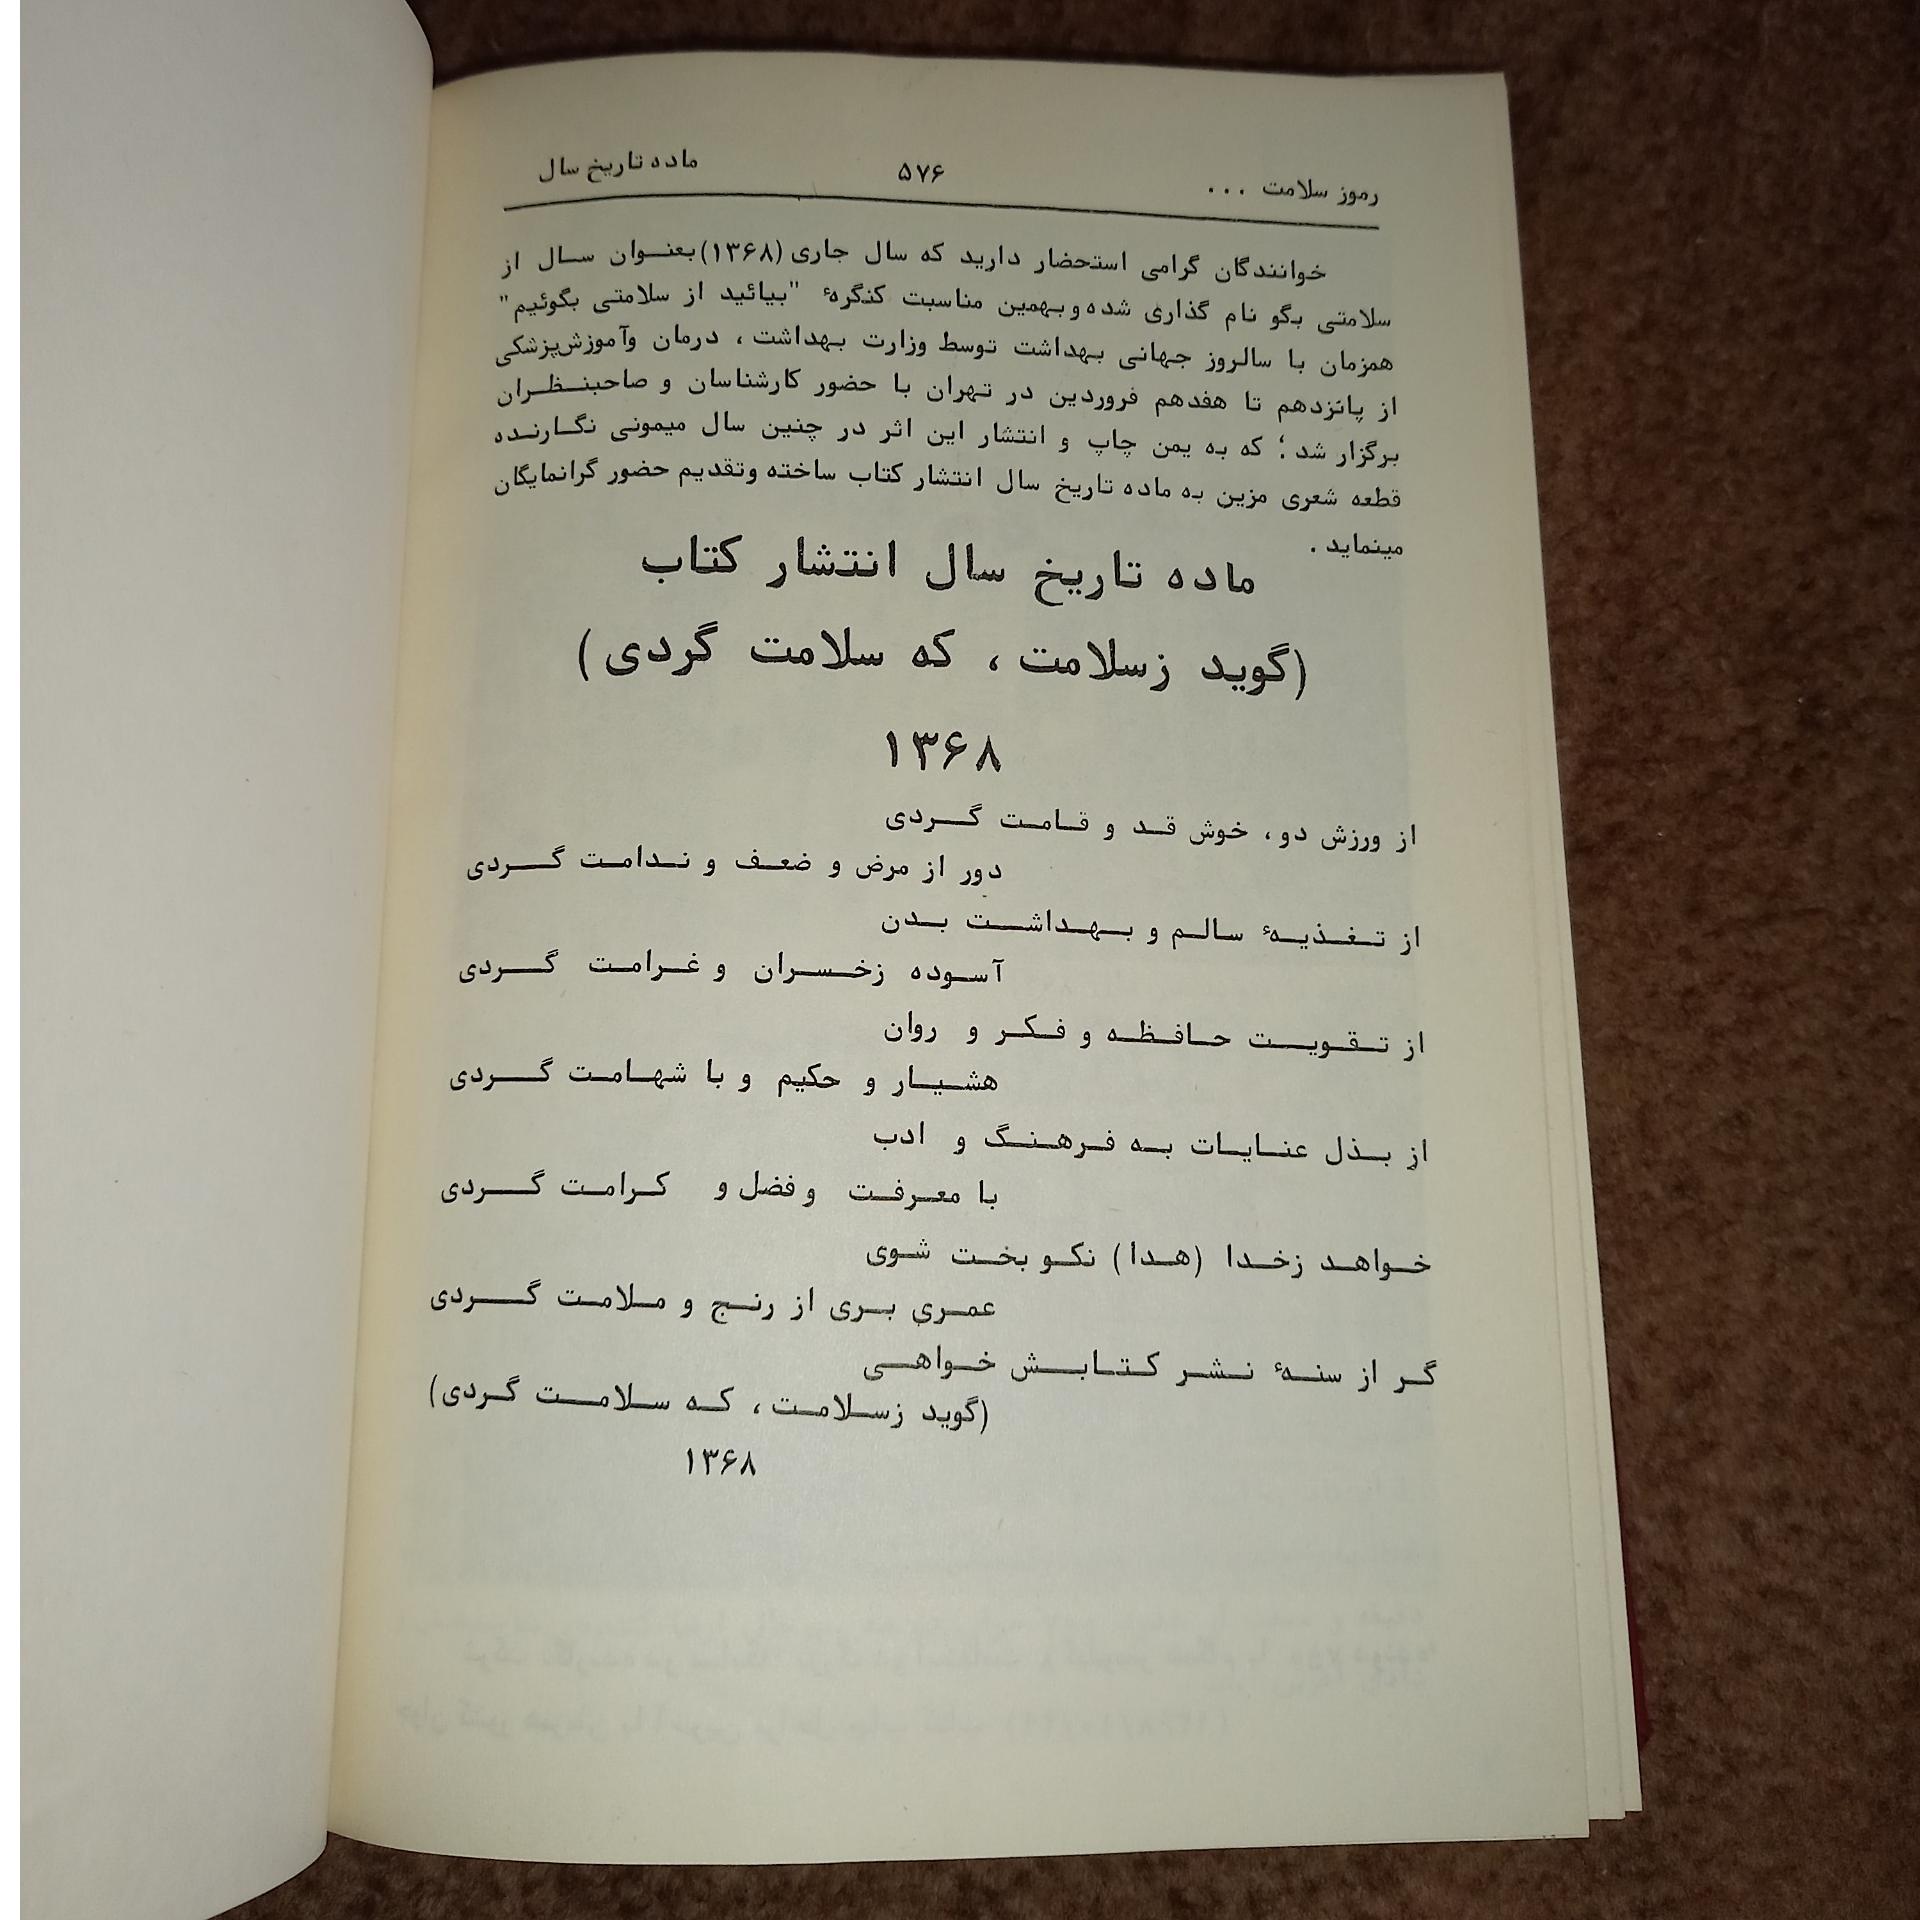 رموز سلامت ... ۵۷۶ ماده تاریخ سال
خوانندگان گرامی استحضار دارید که سال جاری (۱۳۶۸) بعنوان سال از
سلامتی بگو نام گذاری شده و بهمین مناسبت کنگرهٔ "بیائید از سلامتی بگوئیم"
همزمان با سالروز جهانی بهداشت توسط وزارت بهداشت، درمان وآموزش‌پزشکی
از پانزدهم تا هفدهم فروردین در تهران با حضور کارشناسان و صاحبنظران
برگزار شد؛ که به یمن چاپ و انتشار این اثر در چنین سال میمونی نگارنده
قطعه شعری مزین به ماده تاریخ سال انتشار کتاب ساخته وتقدیم حضور گرانمایگان
مینماید.
ماده تاریخ سال انتشار کتاب
(گوید زسلامت، که سلامت گردی)
۱۳۶۸
از ورزش دو، خوش قد و قامت گردی
دور از مرض و ضعف و ندامت گردی
از تغذیهٔ سالم و بهداشت بدن
آسوده زخسران و غرامت گردی
از تقویت حافظه و فکر و روان
هشیار و حکیم و با شهامت گردی
از بذل عنایات به فرهنگ و ادب
با معرفت و فضل و کرامت گردی
خواهد زخدا (هدا) نکو بخت شوی
عمری بری از رنج و ملامت گردی
گر از سنهٔ نشر کتابش خواهی
(گوید زسلامت، که سلامت گردی)
۱۳۶۸